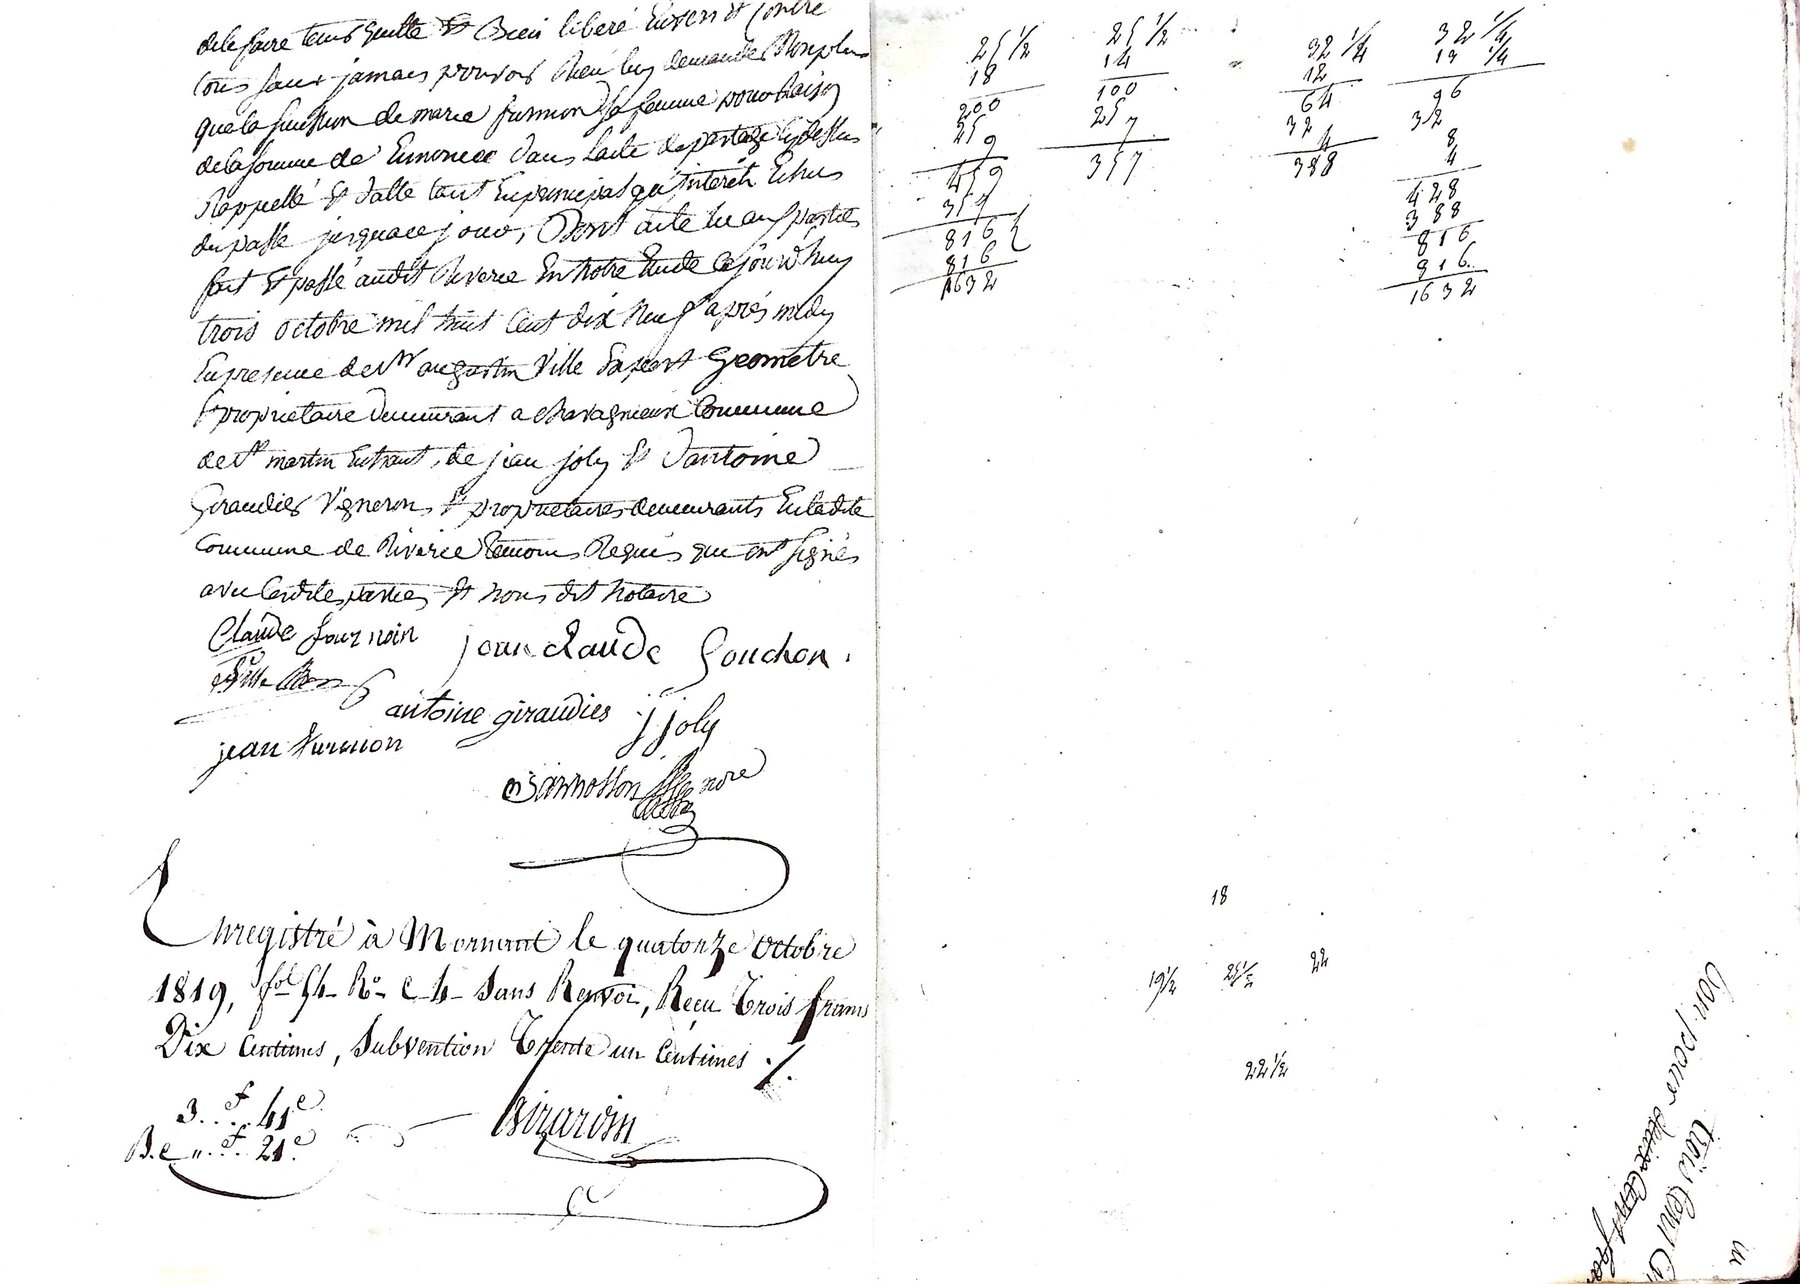 de le faire tenir quitte et Bien libéré Envers et Contre
tous sans jamais pouvoir Rien luy demander Non plus
que la succession de marie furnion sa femme pour Raison
de la somme de Enoncée dans l'acte de partage cy dessus
Rappellé et datté tant En principal qu'interêts Echus
du passé jusqu'a ce jour, Dont acte lu aux parties
fait et passé audit Riverie En notre Etude Cejourd'huy
trois octobre mil huit Cent dix Neuf après midy
En presence de Mr augustin Ville Expert Geometre
proprietaire demeurant a Chavagnieux Commune
de St martin , de jean joly et d'antoine
Giraudier Vigneron et proprietaires demeurants En ladite
Commune de Riverie temoins Requis qui ont signés
avec lesdites parties et nous dit notaire
Claude fournoin jean claude Gouchon.
Ville
antoine giraudier j joly
jean furnion
nore
Enregistré à Mornant le quatorze octobre
1819, fol 54 Ro C 4 Sans Renvoi, Reçu Trois francs
Dix Centimes, Subvention Trente un Centimes ./.
3..f..41c
B.e ".f. 21c
Girardin
25 1/2
18
200
25
9
459
357
816
816
1632
25 1/2
14
100
25
7
357
32 1/4
12
64
32
4
388
32 1/4
13 1/4
96
32
8
4
428
388
816
816
1632
18
19 1/2 25 1/2 22
22 1/2
Bon pour deux Cent
trois Cent